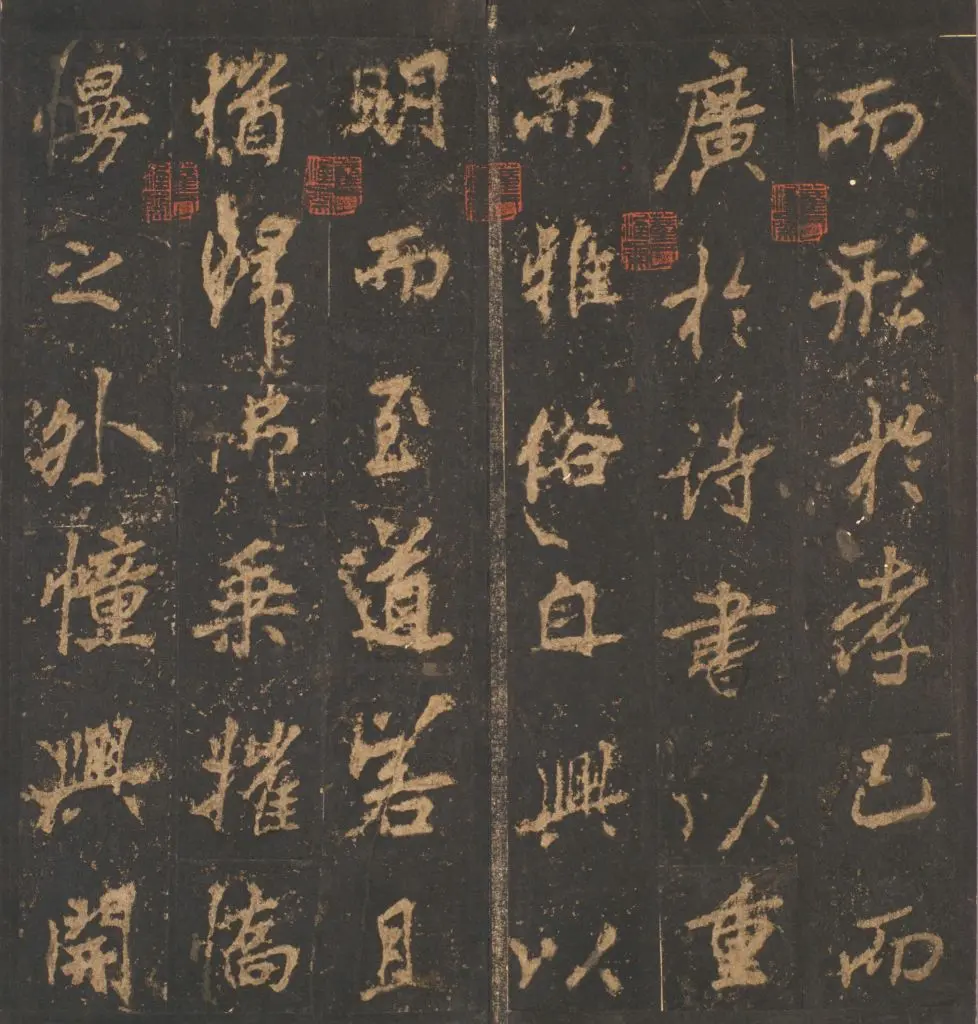 而形於孝已而
廣於詩書以重
而雅俗自興以
明而至道若且
猶歸乘摧憍
慢之外幢興開